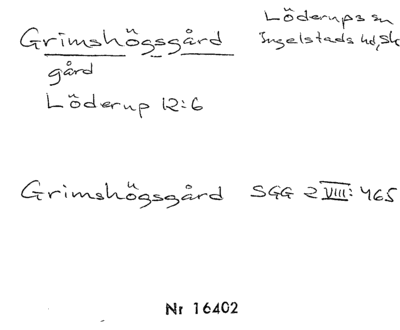 Grimshögsgård
Löderups sn
Ingelstads hd, Sk
gård
Löderup 12:6
Grimshögsgård SGG 2 VIII: 465
Nr 16402